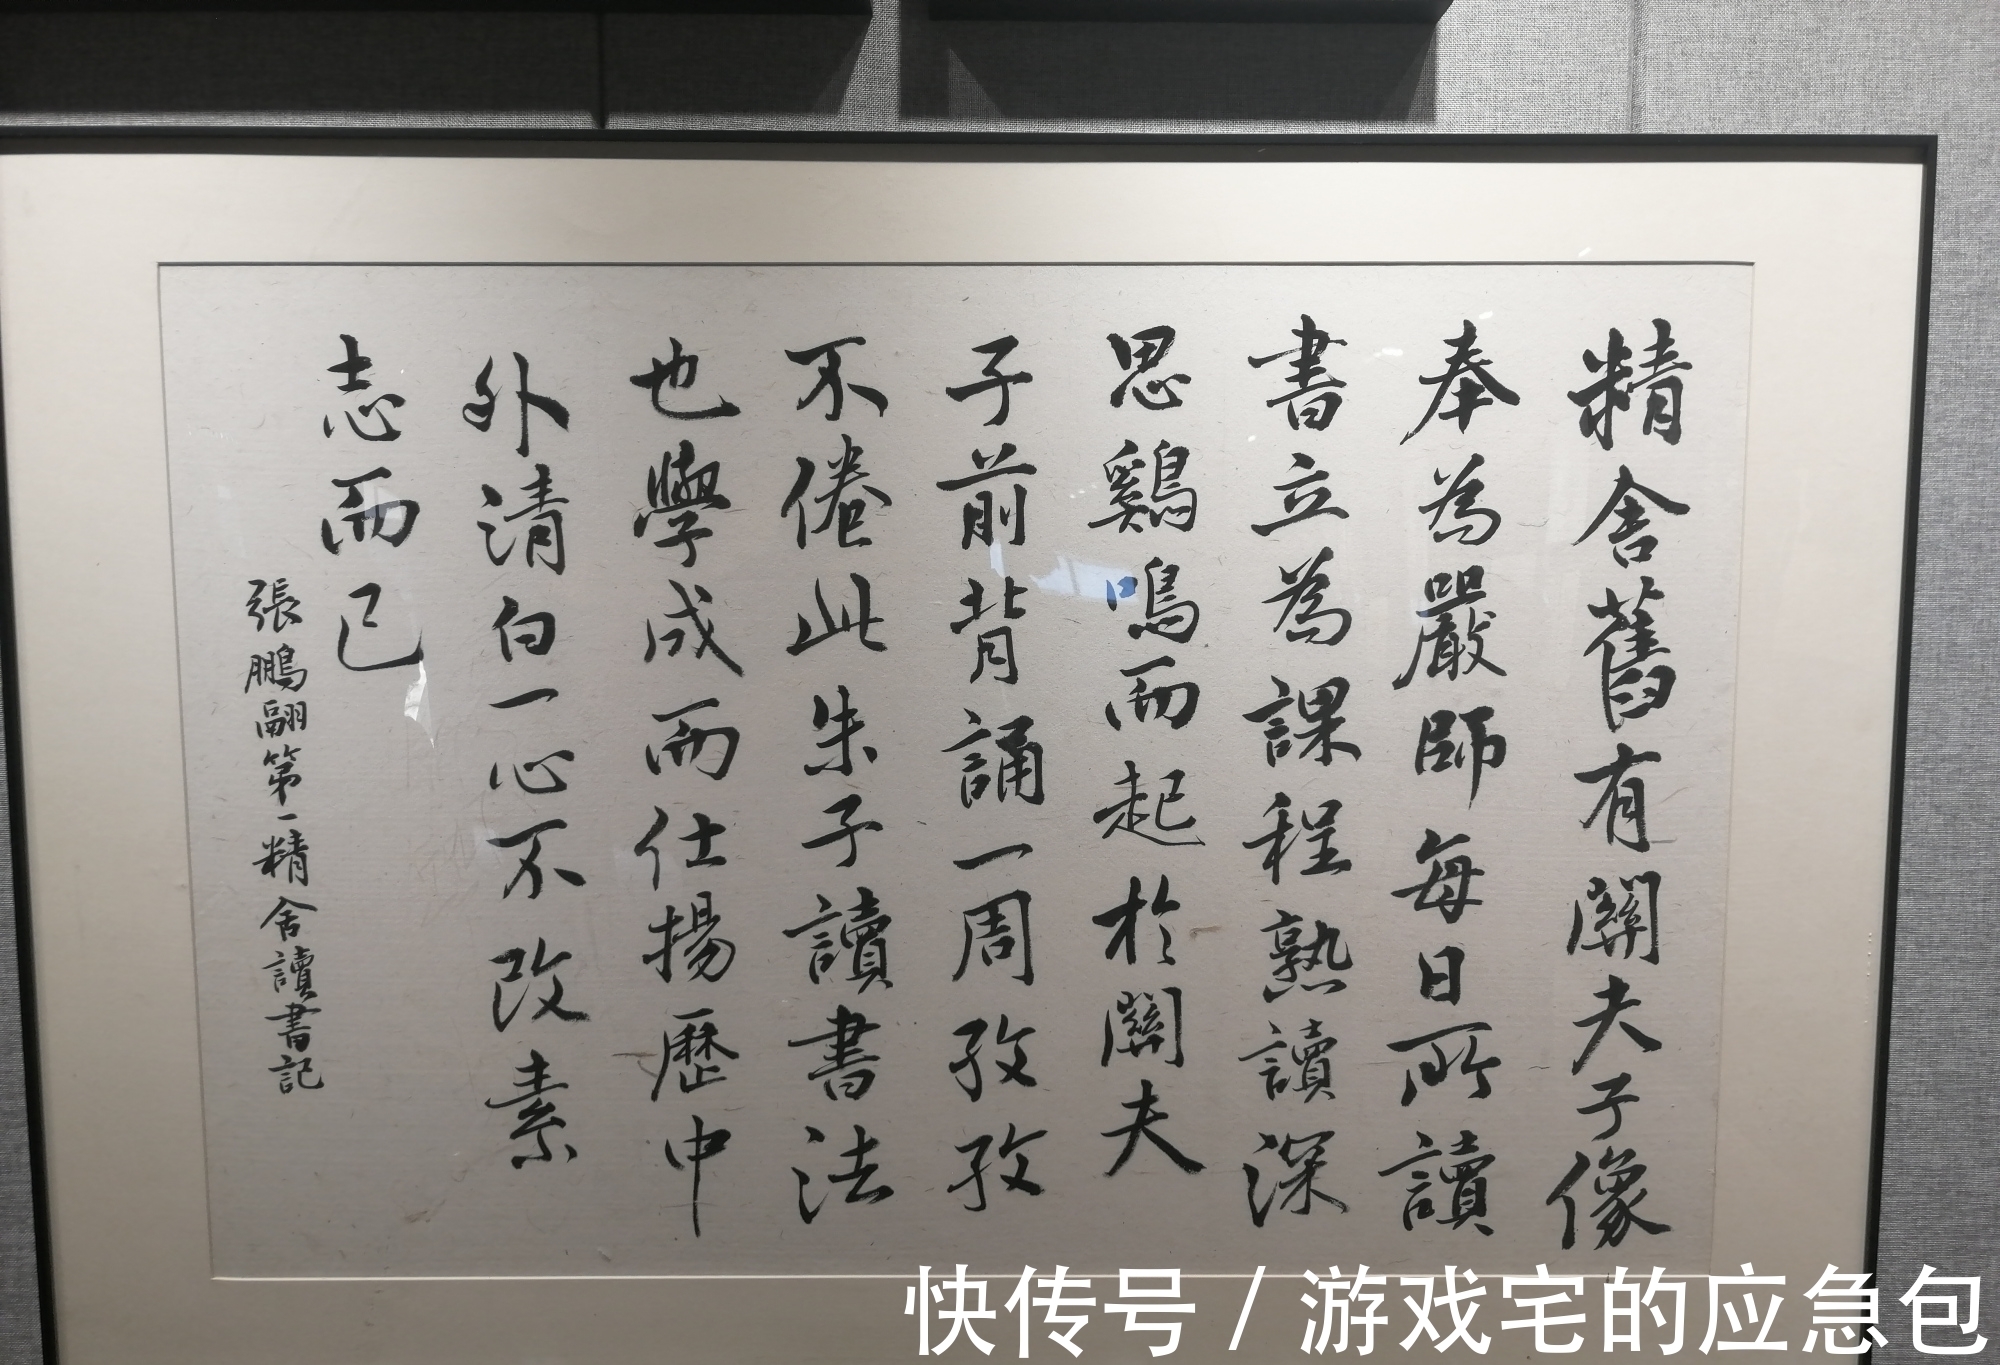 精舍舊有關夫子像
奉為嚴師每日所讀
書立為課程熟讀深
思鷄鳴而起於關夫
子前背誦一周孜孜
不倦此朱子讀書法
也學成而仕揚歷中
外清白一心不改素
志而已
張鵬翮第一精舍讀書記
快传号 / 游戏宅的应急包